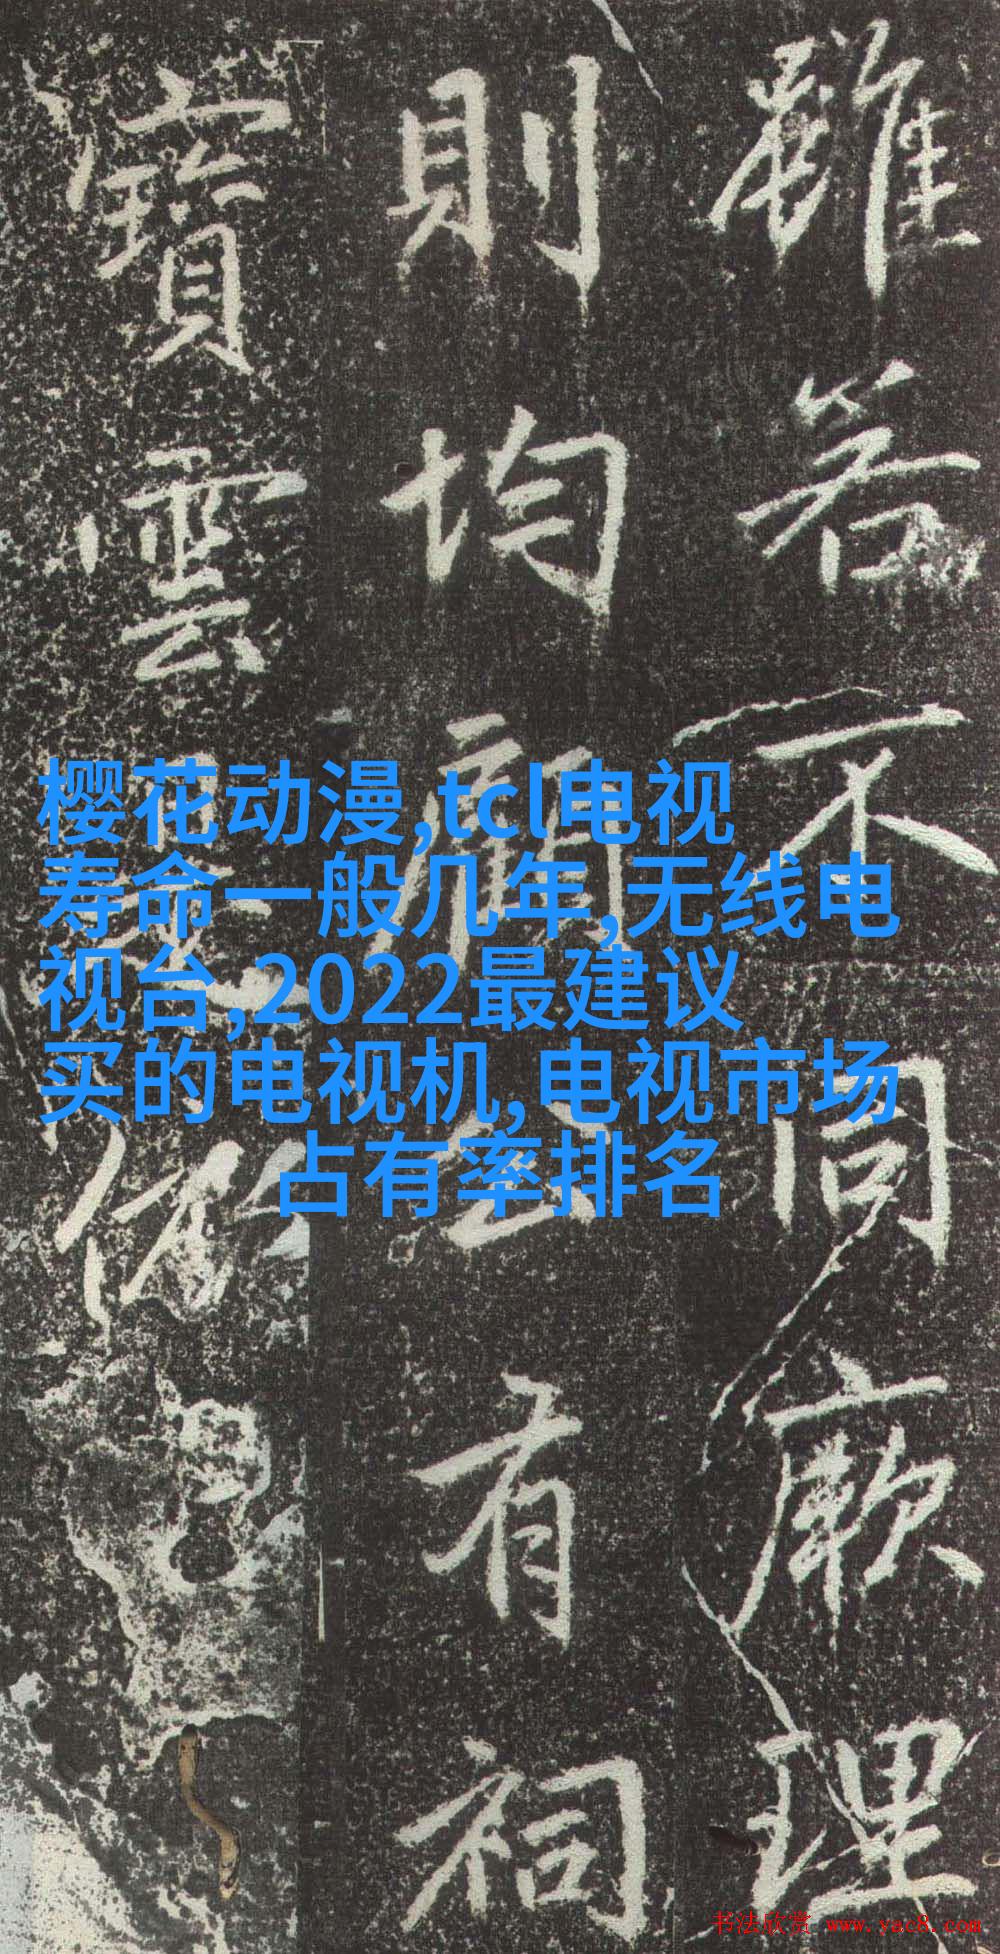 雖若不同厥理
則均顧公有祠
寶雲
樱花动漫,tcl电视
寿命一般几年,无线电
视台,2022最建议
买的电视机,电视市场
占有率排名
书法欣赏 www.yac8.com